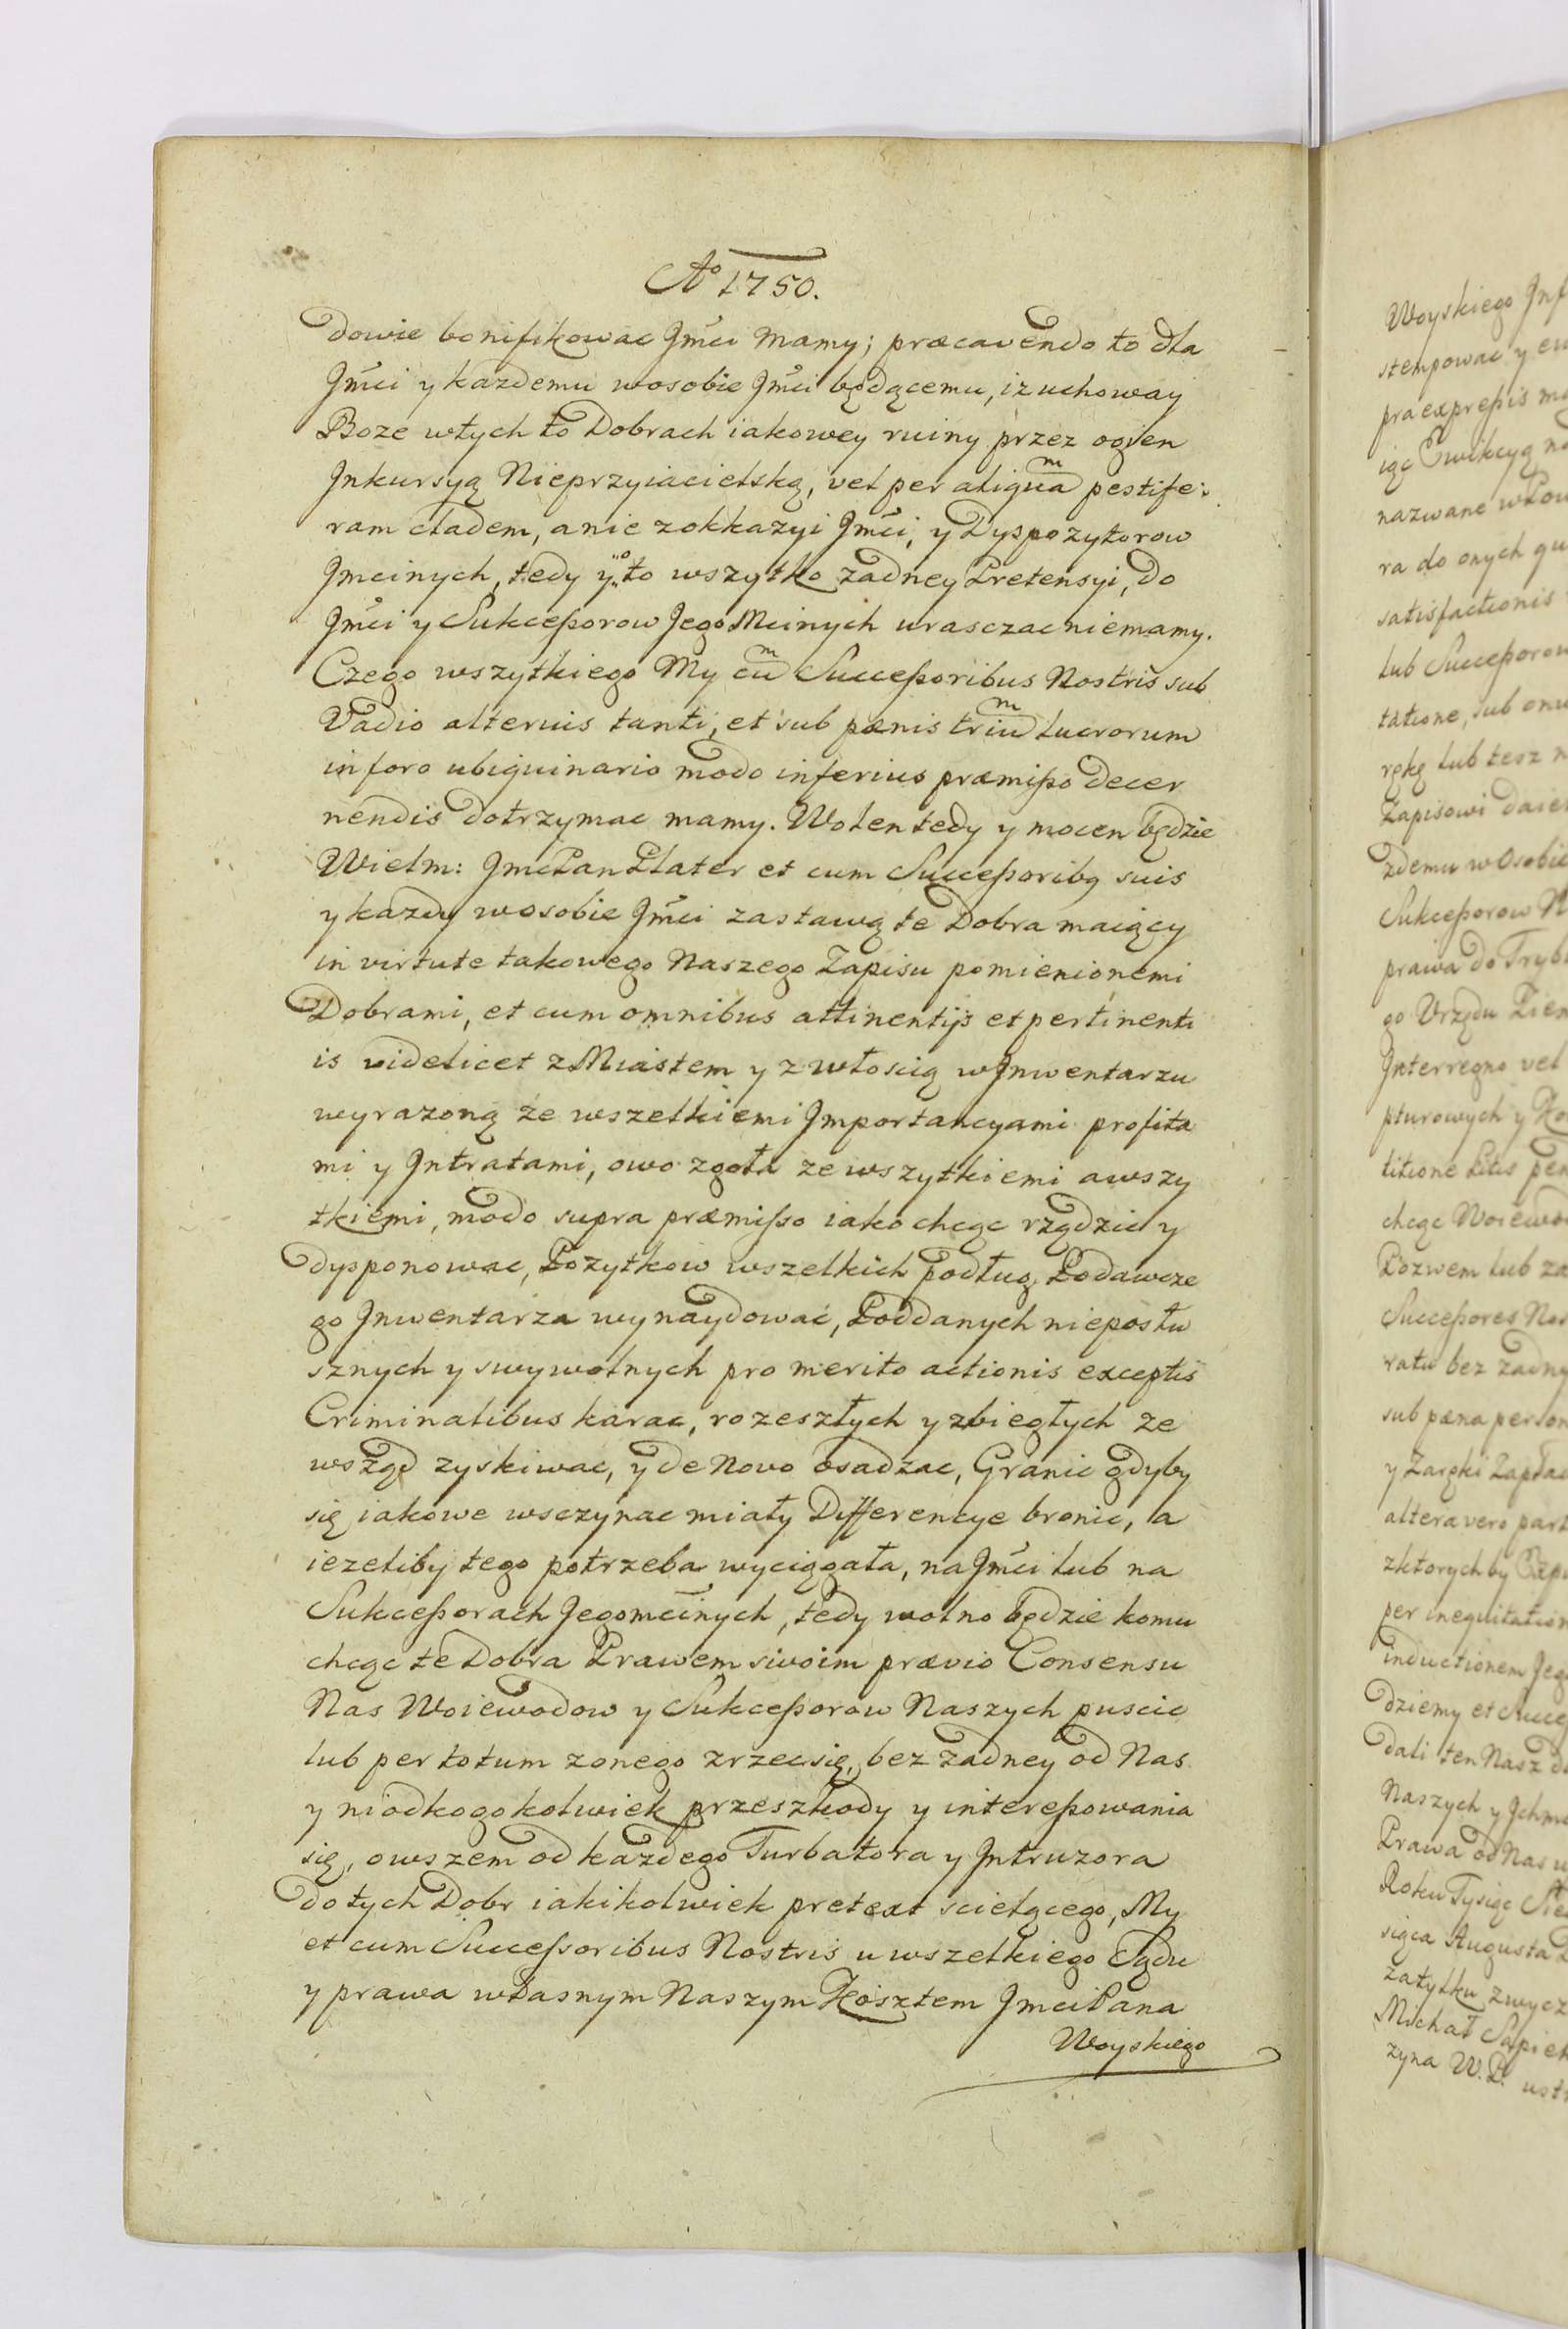 Aº 1750.
dowie bonifikowac Jmći mamy; præcavendo to dla
Jmći y kazdemu wosobie Jmći będącemu, iz uchoway
Boze wtych to Dobrach iakowey ruiny przez ogien
Jnkursyą Nieprzyiacielską, vel per aliquaᵐ pestife:
ram cladem, a nie zokkazyi Jmći, y Dyspozytorow
Jmcinych, tedy y o to wszytko zadney Pretensyi, do
Jmći y Sukceßorow Jego Mcinych urasczac niemamy.
Czego wszytkiego My cuᵐ Succeßoribus Nostris sub
Vadio alterius tanti, et sub pænis triuᵐ lucrorum
in foro ubiquinario modo inferius præmißo decer
nendis dotrzymac mamy. Wolen tedy y mocen będzie
Wielm: Jmc Pan Plater et cum Succeßoribq suis
y kazdy wosobie Jmći zastawą te Dobra maiący
in virtute takowego Naszego Zapisu pomienionemi
Dobrami, et cum omnibus attinentijs et pertinenti
is videlicet z Miastem y z włoscią w Jnwentarzu
wyrazoną ze wszelkiemi Jmportancyami profita
mi y Jntratami, owo zgoła ze wszytkiemi a wszy
tkiemi, modo supra præmisso iako chcąc rządzic y
dysponowac, Pozytkow wszelkich podług Podawcze
go Jnwentarza wynaydować, Poddanych nieposłu
sznych y swywolnych pro merito actionis exceptis
Criminalibus karac, rozeszłych y zbiegłych ze
wsząd zyskiwac, y de novo osadzac, Granic gdyby
się iakowe wsczynac miały Differencye bronic, a
iezeliby tego potrzeba wyciągała, na Jmći lub na
Sukceßorach Jegomcinych, tedy wolno będzie komu
chcąc te Dobra Prawem swoim prævio Consensu
Nas Woiewodow y Sukceßorow Naszych puscic
lub per totum zonego zrzec się, bez zadney od Nas
y niodkogokolwiek przeszkody y intereßowania
się, owszem od kazdego Turbatora y Jntruzora
do tych Dobr iakikolwiek pretext scielącego, My
et cum Successoribus Nostris u wszelkiego Sądu
y prawa własnym Naszym Kosztem Jmci Pana
Woyskiego
Woyskiego Jnf
stempowac y
praeexpreßis
iąc Ewikcyą
nazwane
ra do onych
satisfactionis
lub Succeßorow
tatione, sub
rękę lub tesz
Zapisowi
zdemu w Osobie
Sukceßorow
prawa do
go Vrzędu
Jnterregno vel
pturowych y
titione Litis
chcąc
Pozwem lub za
Succeßores
ratu bez zadny
sub pæna
y Zaręki
altera vero
zktorych by
per inequitation
inductionem
dziemy et
dali ten Nasz
Naszych y
Prawa od Nas
Roku Tysiąc
siąca Augusta
zatytku
Michał
zyna W. L.